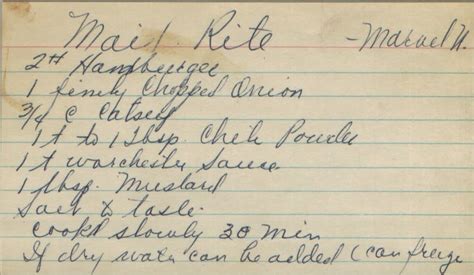 Maid Rite - Marvel N.
2# Hamburger
1 finely Chopped Onion
3/4 C Catsup
1 t to 1 Tbsp. Chili Powder
1 t worchester Sauce
1 tbsp. Mustard
Salt to taste
cook slowly 30 min
If dry water can be added (can freeze